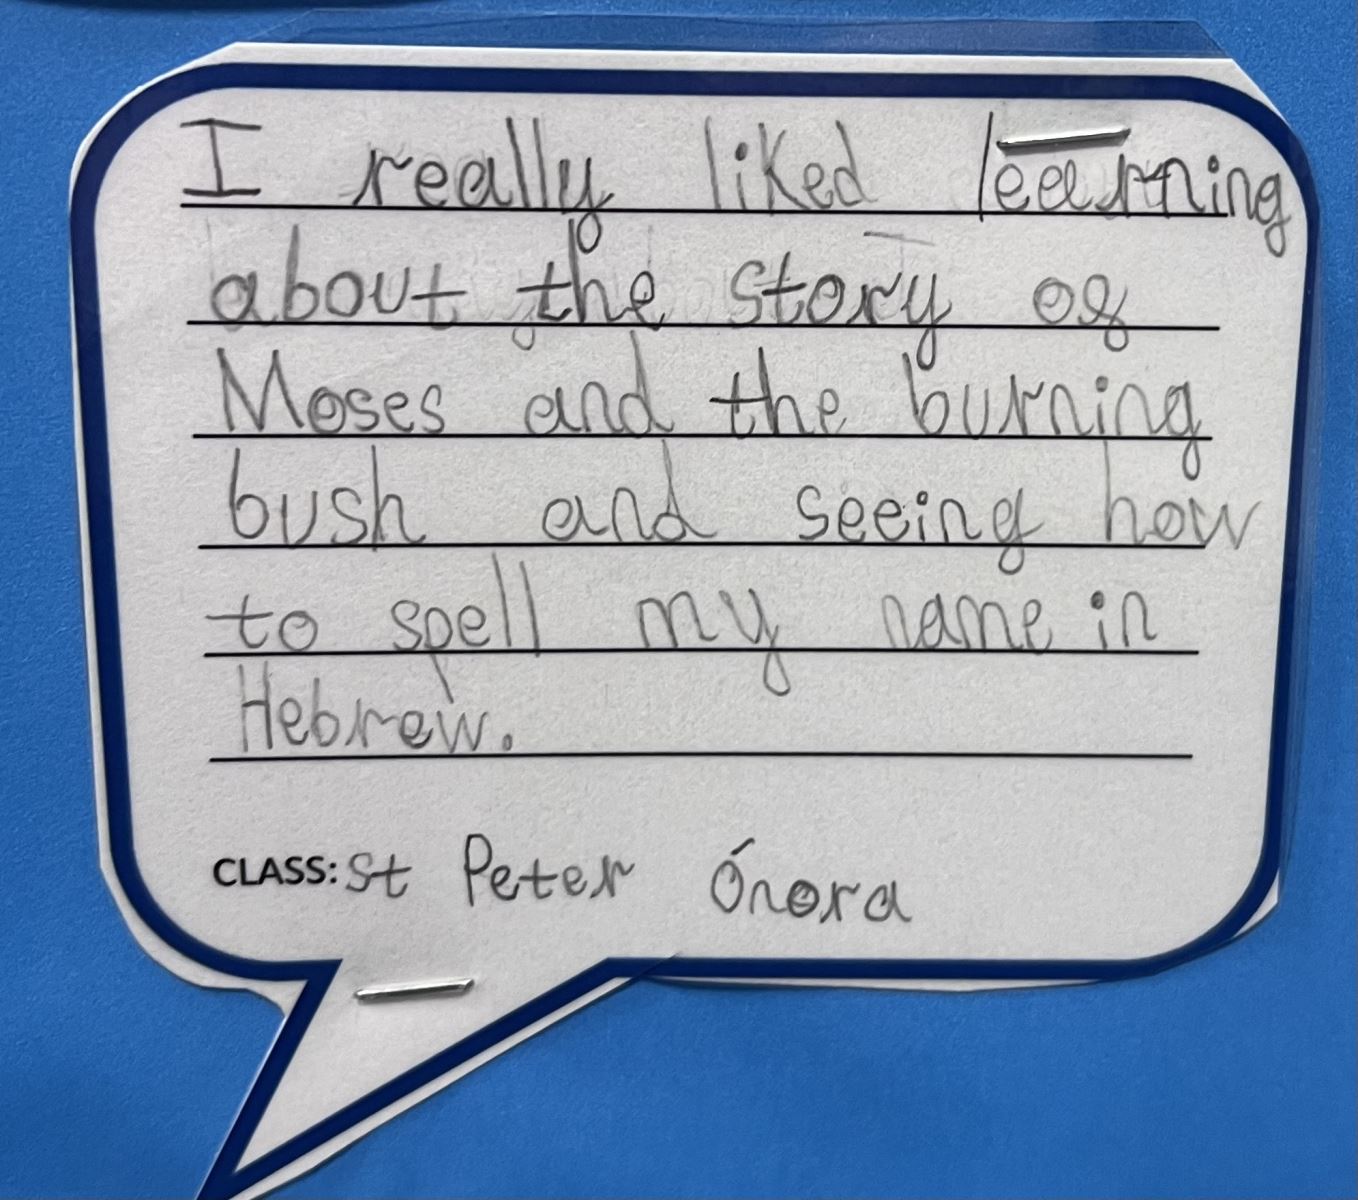 I really liked learning
about the story of
Moses and the burning
bush and seeing how
to spell my name in
Hebrew.
CLASS: St Peter Ónora